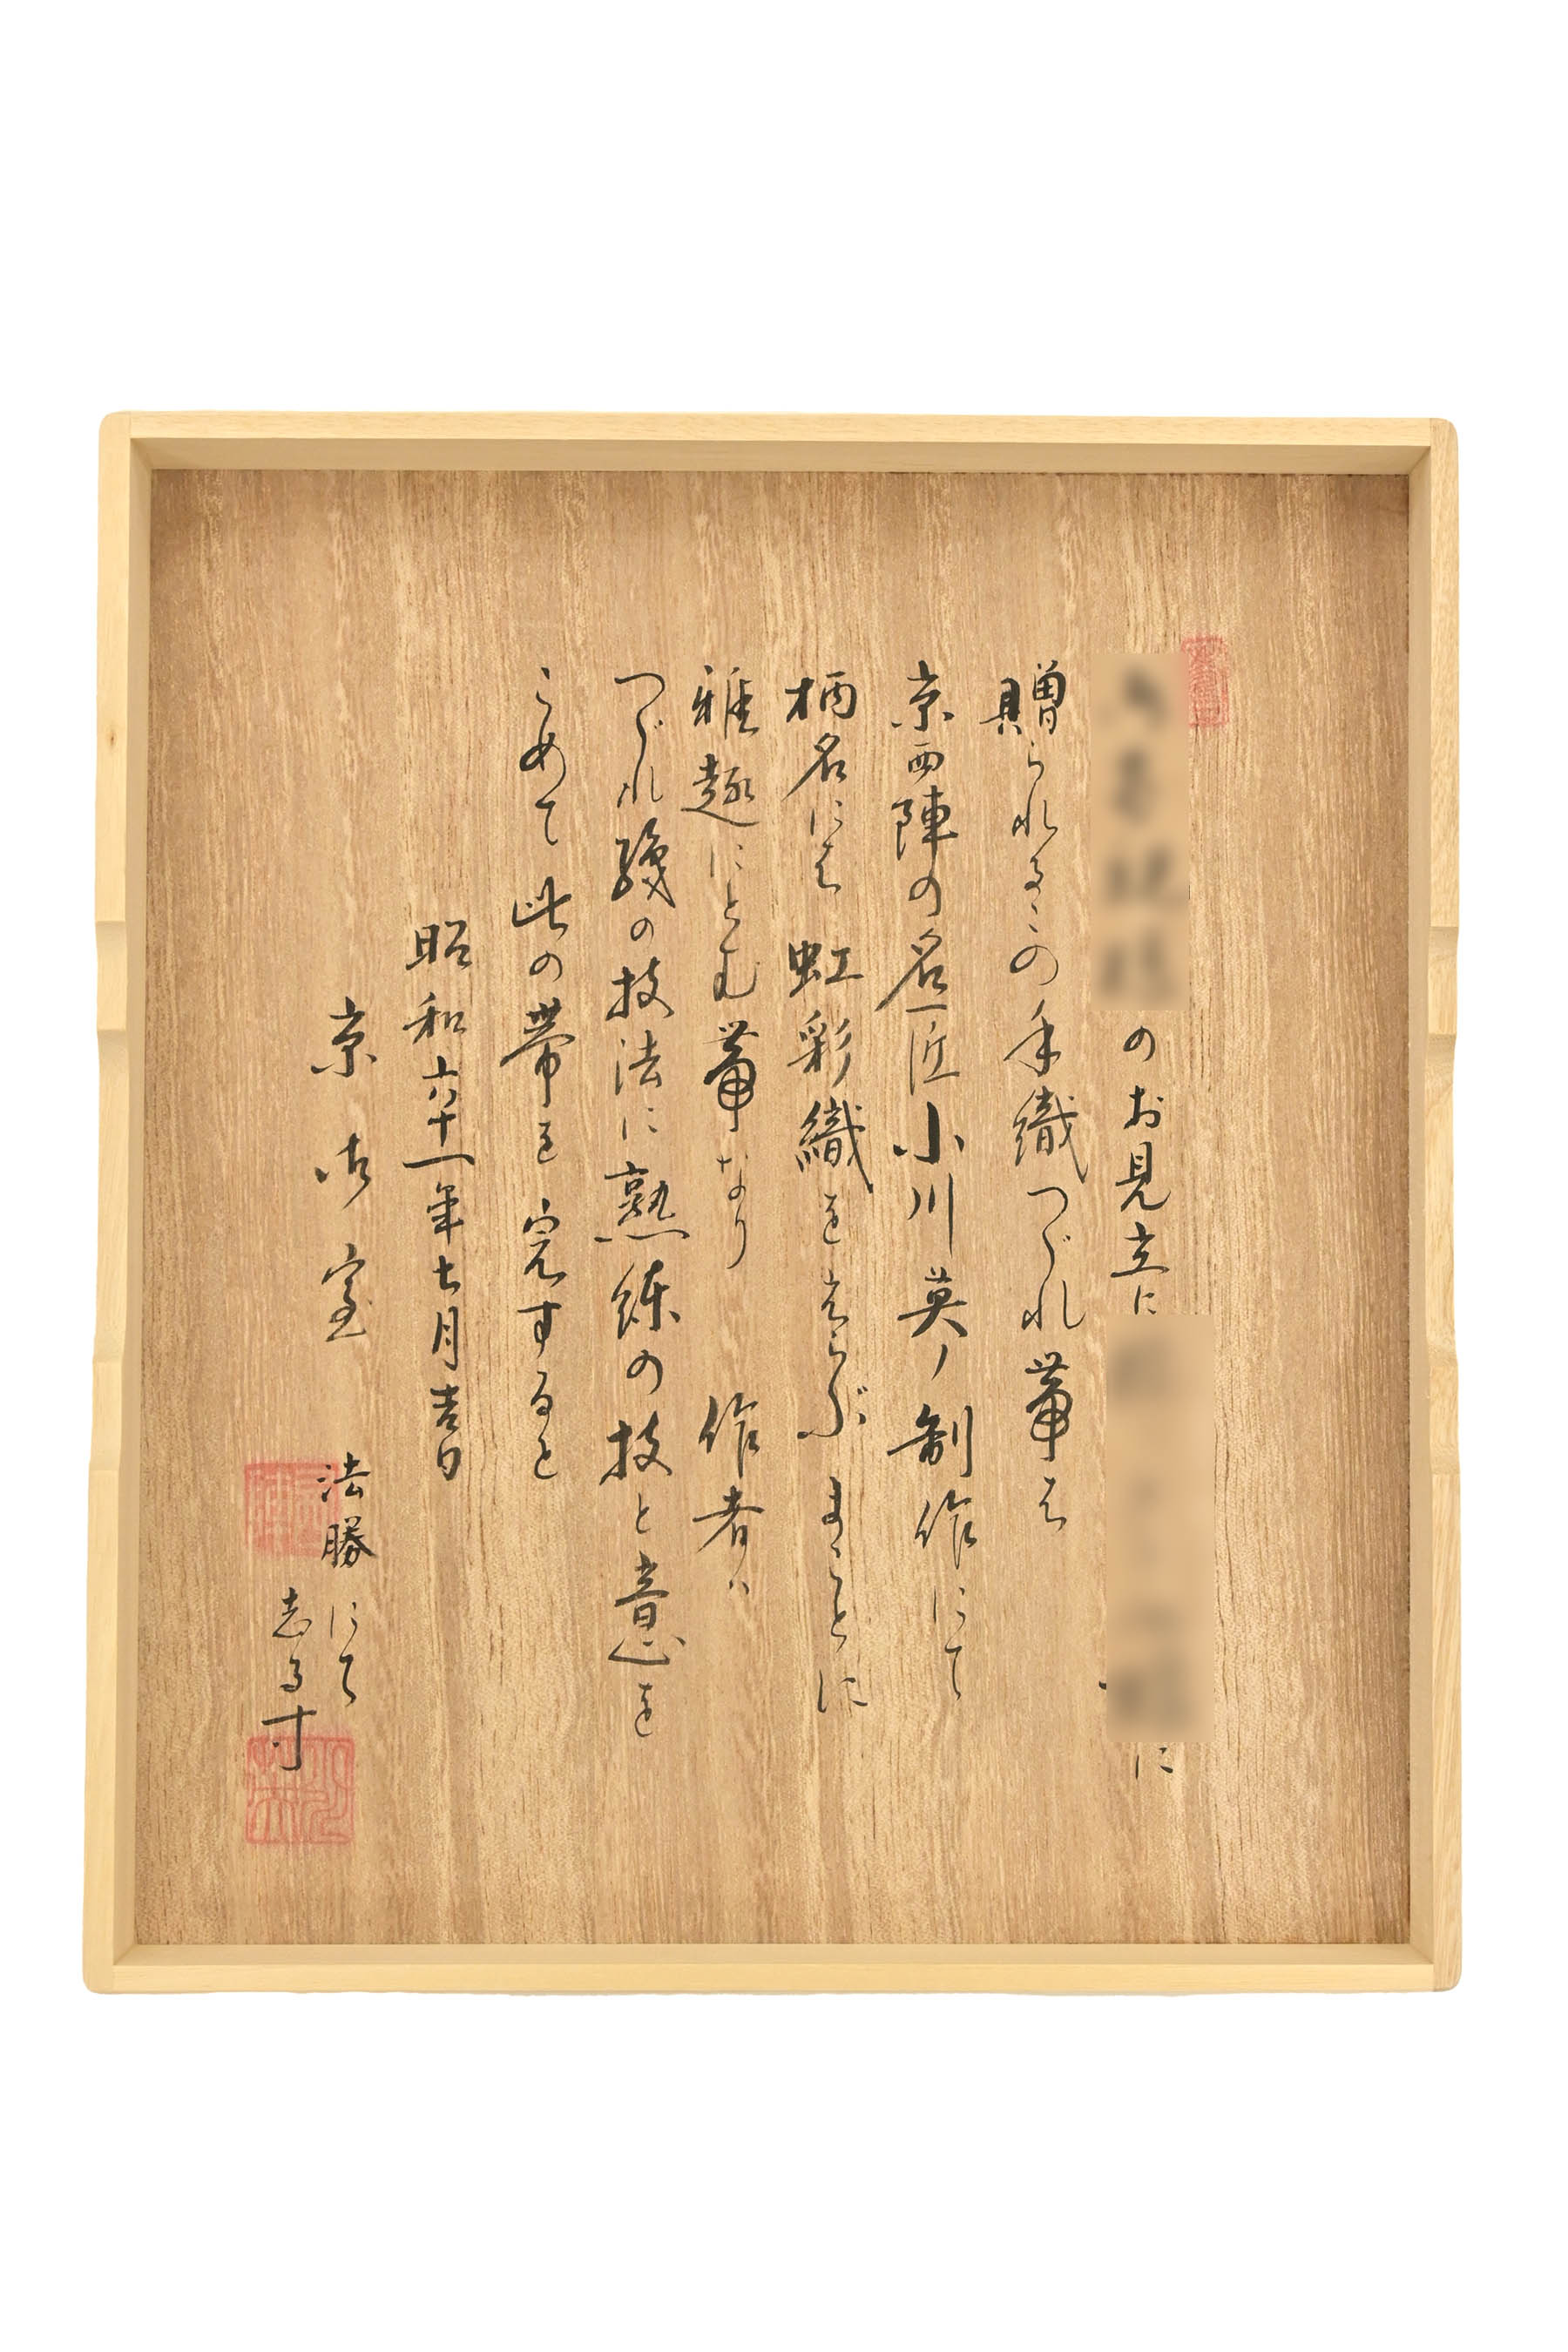 のお見立に に
贈られるこの手織つづれ帯は
京西陣の名匠小川英ノ制作にて
柄名には虹彩織をえらぶまことに
雅趣にとむ帯なり 作者ハ
つづれ織の技法に熟練の技と意を
こめて此の帯を完すると
昭和六十一年七月吉日
京 御室 法勝にて
志るす